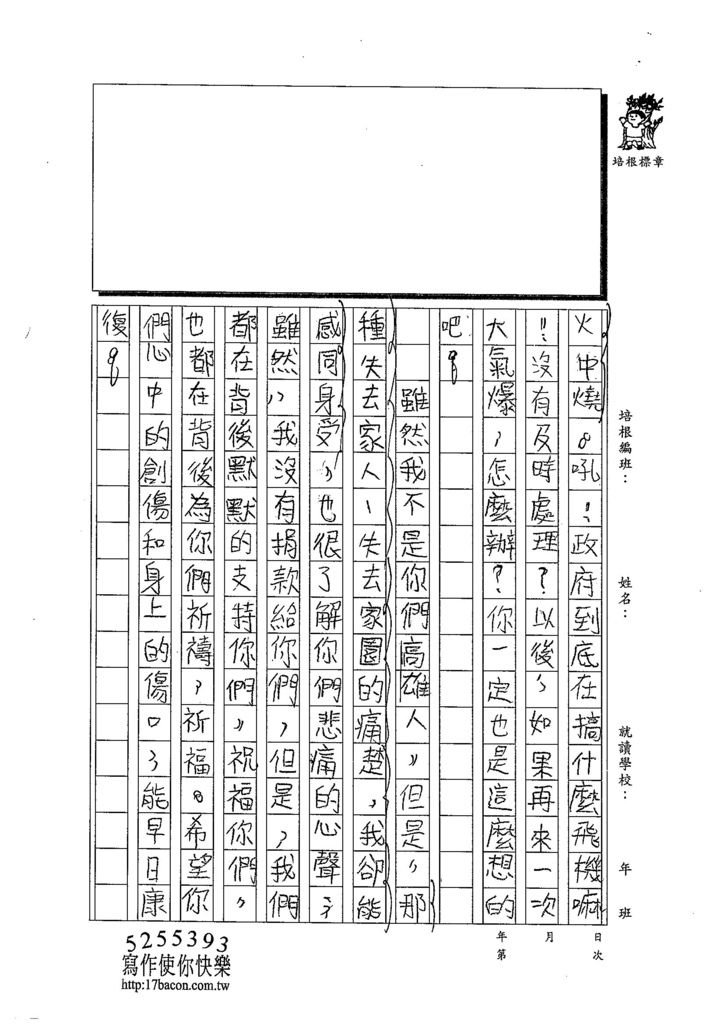 培根標章
培根編班： 姓名： 就讀學校： 年 班
火中燒。吼！政府到底在搞什麼飛機嘛
！！沒有及時處理？以後，如果再來一次
大氣爆，怎麼辦？你一定也是這麼想的
吧。
雖然我不是你們高雄人，但是，那
種失去家人、失去家園的痛楚，我卻能
感同身受，也很了解你們悲痛的心聲，
雖然，我沒有捐款給你們，但是，我們
都在背後默默的支特你們，祝福你們，
也都在背後為你們祈禱，祈福。希望你
們心中的創傷和身上的傷口，能早日康
復。
年 月 日
第 次
5255393
寫作使你快樂
http:17bacon.com.tw